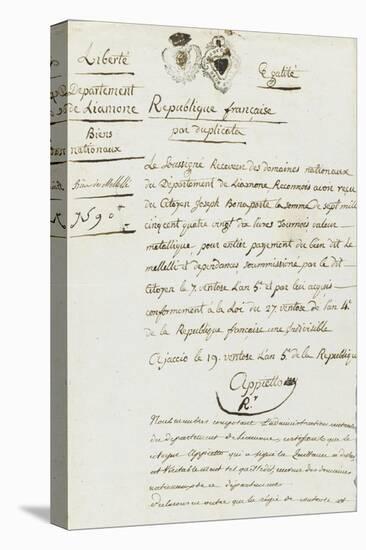 Liberté
Egalité
Departement
de Liamone
Biens
nationaux
Bien de Mellelli
7590#
Republique française
par duplicata
Le Soussigné Receveur des domaines nationaux
du Département de Liamone Reconnois avoir reçu
du Citoyen Joseph Bonaparte la Somme de sept mille
cinq cent quatre vingt dix livres tournois valeur
metallique, pour entier payement du bien dit le
mellelli et dependances soummissioné par le dit
Citoyen le 7. ventose L'an 5e et par lui acquis
conformement a la Loi du 27. ventose de l'an 4e
de la Republique françoise une & indivisible
Ajaccio le 19. ventose L'an 5e de la Republique
Appietto
Rr
Nous membres composant l'administration centrale
du departement de Liamone, certifions que le
citoyen Appietto qui a signé la Quittance
est veritablement tel des domaines
nationaux de ce departement
que la régie de